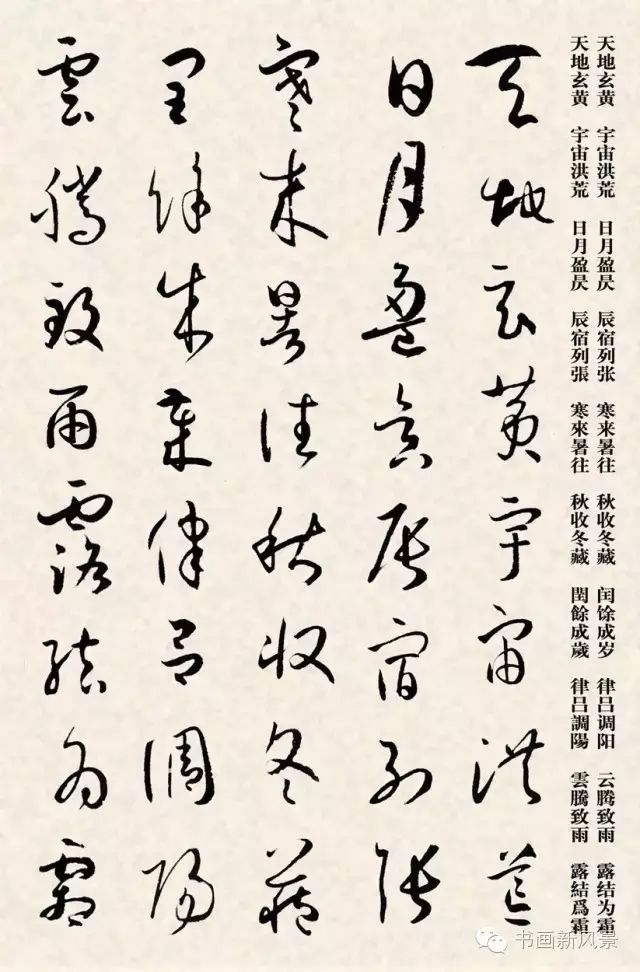 天地玄黄 宇宙洪荒 日月盈昃 辰宿列张 寒来暑往 秋收冬藏 闰馀成岁 律吕调阳 云腾致雨 露结为霜
天地玄黄 宇宙洪荒 日月盈昃 辰宿列張 寒來暑往 秋收冬藏 閏餘成歲 律吕調陽 雲騰致雨 露結爲霜
天地玄黄宇宙洪荒
日月盈昃辰宿列張
寒来暑往秋收冬藏
閏餘成歲律吕調陽
雲騰致雨露結为霜
书画新风景